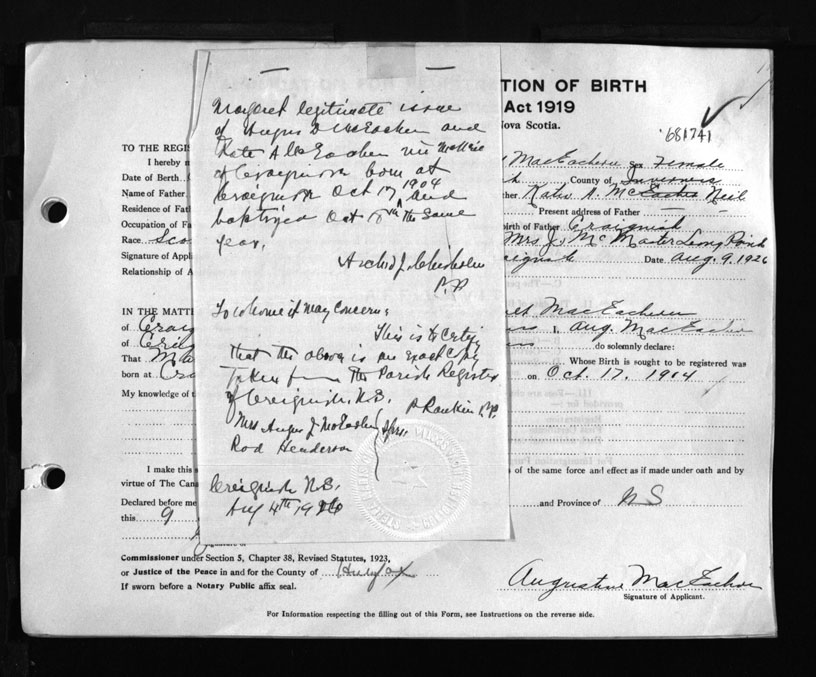 TION OF BIRTH
Act 1919
Nova Scotia.
681741
TO THE REGIS
I hereby m
MacEachern Female
Date of Birth
County of Inverness
Name of Father
Residence of Fat
Present address of Father
Occupation of Fa
Birth of Father Craignish
Race. Sco
Mrs J. McMaster Long Point
Signature of Appli
Date Aug. 9. 1926
Relationship of A
IN THE MATT
MacEachern
of Craig
I, Aug. MacEachern
of
do solemnly declare:
That Ma
Whose Birth is sought to be registered was
born at Cra
on Oct. 17. 1904
My knowledge of t
I make this s
of the same force and effect as if made under oath and by
virtue of The Cana
Declared before me
and Province of N S
this 9
Commissioner under Section 5, Chapter 38, Revised Statutes, 1923,
or Justice of the Peace in and for the County of
If sworn before a Notary Public affix seal.
Augustine MacEachern
Signature of Applicant.
For Information respecting the filling out of this Form, see Instructions on the reverse side.
Margaret legitimate issue
of Angus D McEachen and
Kate A McEachen née McNeil
of Craignish born at
Craignish Oct 17 1904 and
baptized Oct 18th the same
year.
Archd J. Chisholm
P.P.
To whom it may concern:
This is to certify
that the above is an exact copy
taken from the Parish Register
of Creignish, N.S.
P Rankin P.P.
Mrs Angus J McEachen Sprs.
Rod Henderson
Creignish N.S.
Aug 4th 1926